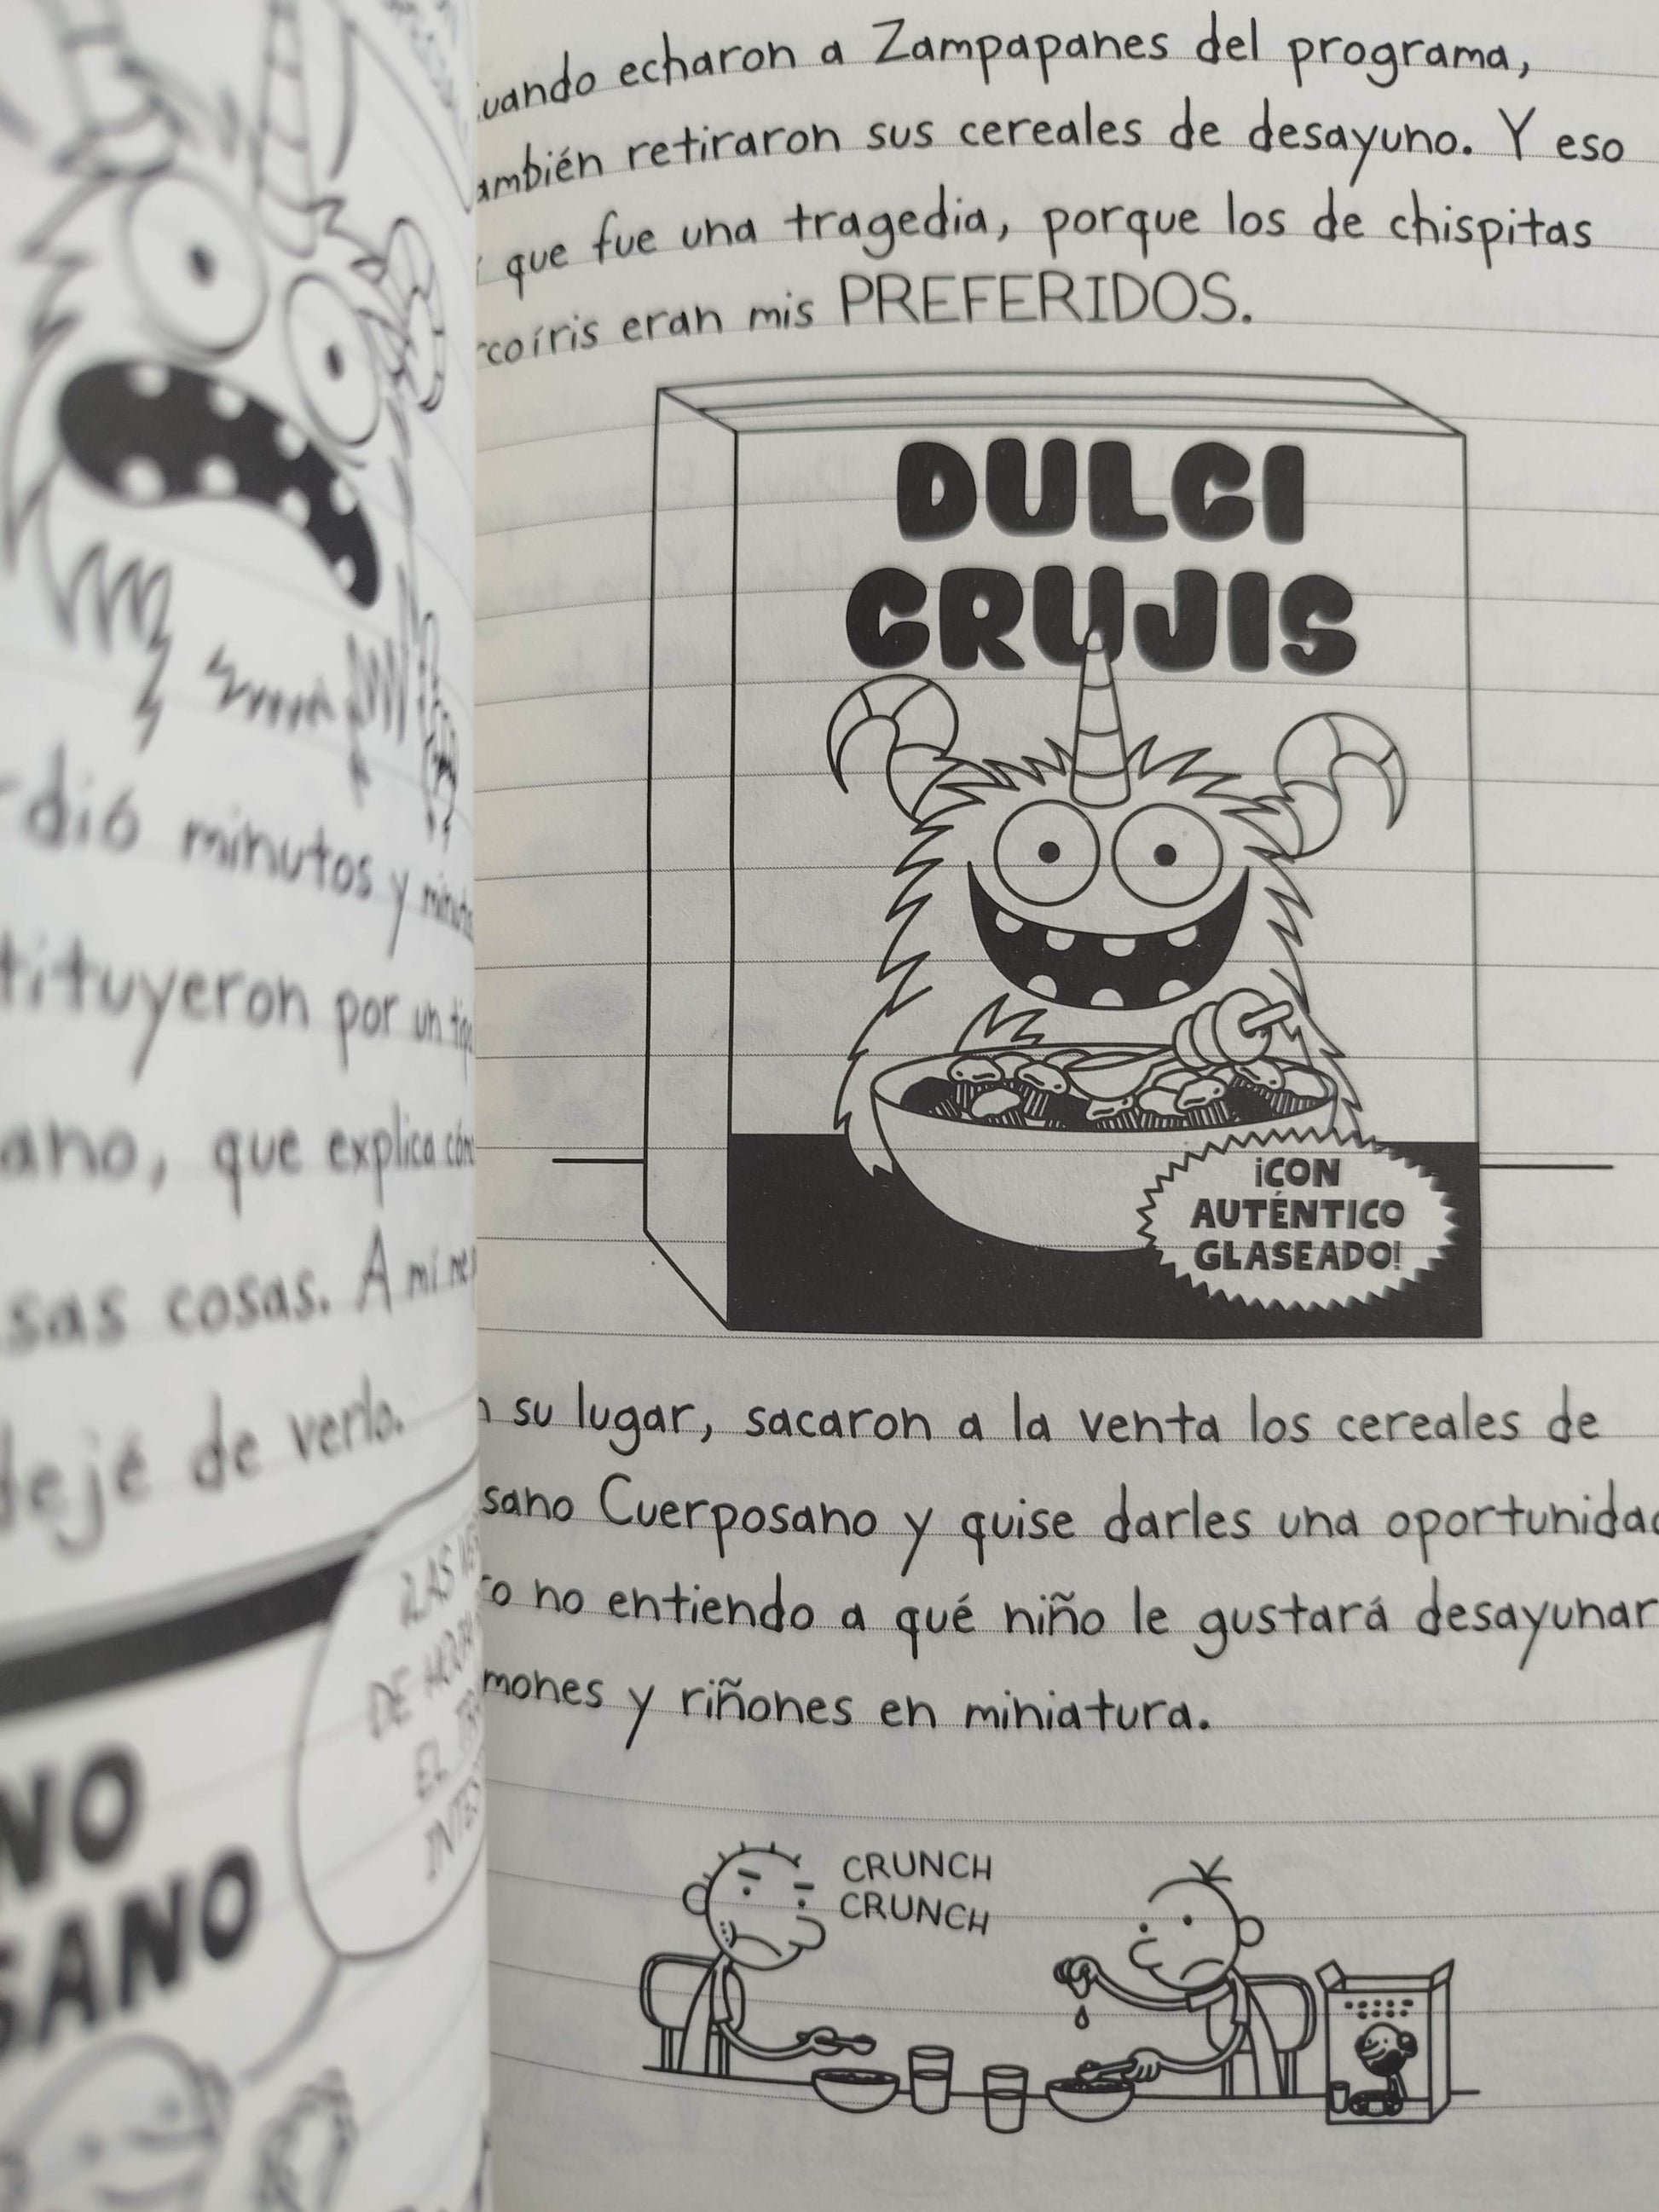 dió minutos y
tituyeron por un
ano, que explica
sas cosas. A mí
dejé de verlo.
NO
SANO
uando echaron a Zampapanes del programa,
ambién retiraron sus cereales de desayuno. Y eso
que fue una tragedia, porque los de chispitas
rcoíris eran mis PREFERIDOS.
DULCI
CRUJIS
¡CON
AUTÉNTICO
GLASEADO!
n su lugar, sacaron a la venta los cereales de
sano Cuerposano y quise darles una oportunidad
ro no entiendo a qué niño le gustará desayunar
mones y riñones en miniatura.
CRUNCH
CRUNCH